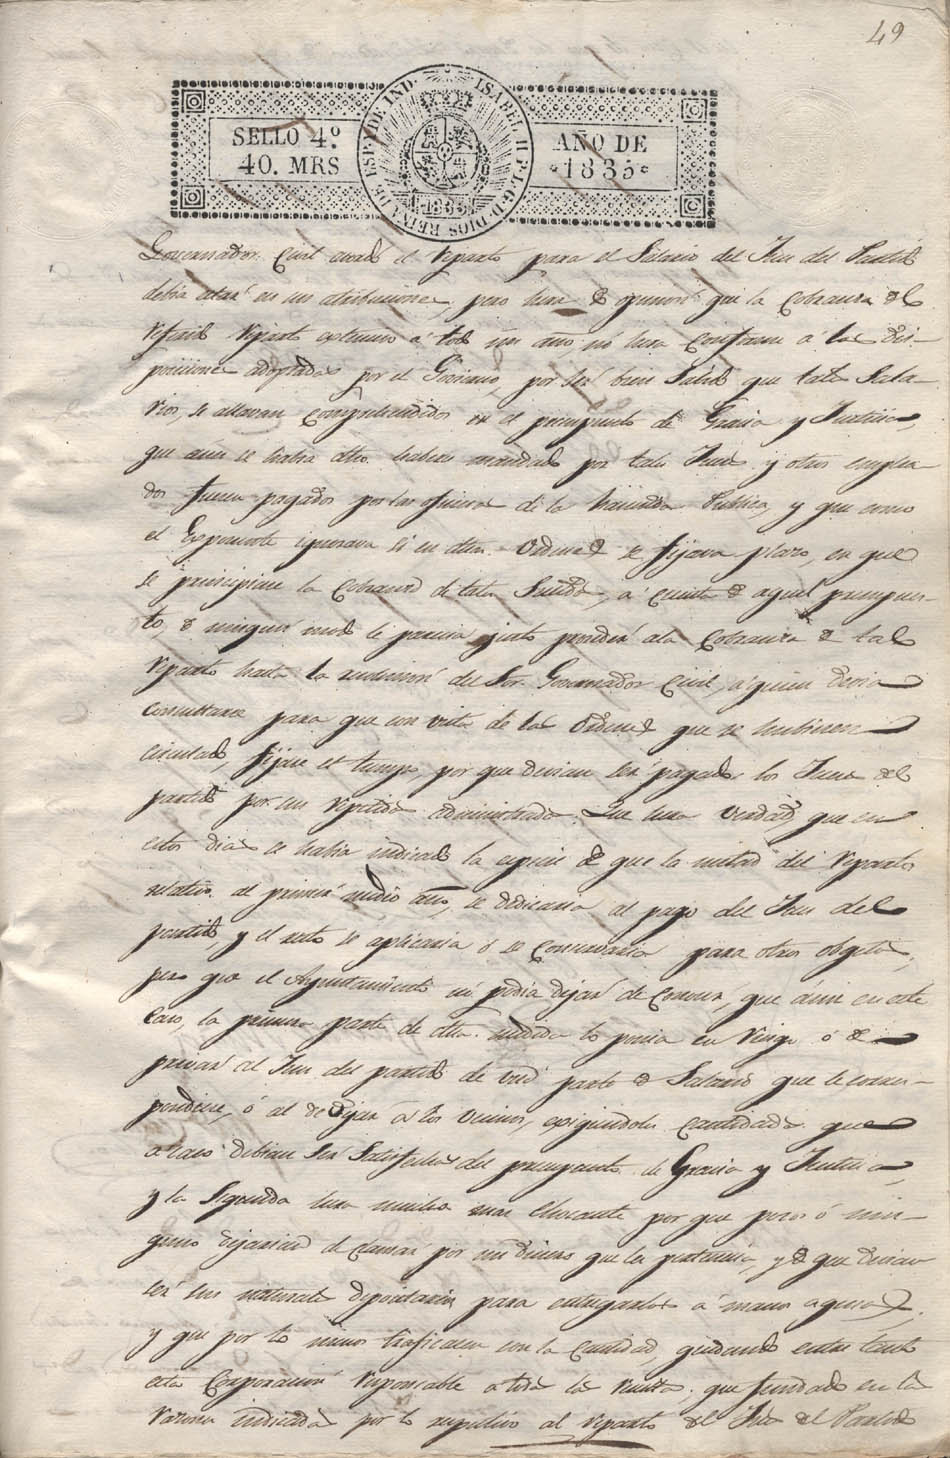 49
SELLO 4º
40. MRS
ISABEL II P. L. G. D. DIOS REINA DE ESP. Y DE IND.
1835
AÑO DE
1835
Governador Civil el Reparto para el Salario del Juez del Partido
debia estar en sus atribuciones, pero hera de opinion que la Cobranza del
Reparto á todo un año, no hera Conforme á las dis-
posiciones adoptadas por el Govierno, por ser bien Sabido que tales Sala-
rios, se allavan Comprehendidos en el presupuesto de Gracia y Justicia,
que aun se habia mandado por tales Jueces y otros emplea-
dos fuesen pagados por las oficinas de la Hacienda Publica, y que como
el Exponente ignorava si en Ordenes se fijava plazo, en que
se principiase la Cobranza de tales á cuenta de aquel presupues-
to, de ningun modo le parecia justo proceder a la Cobranza de tal
Reparto hasta la resolucion del Sor. Governador Civil, á quien devia
Consultarse para que con vista de las Ordenes que se hubiesen
circulado, fijase el tiempo, por que devian ser pagados los Jueces del
partido por sus administrados. Que hera verdad que en
estos dias se habia indicado la especie de que la mitad del Reparto
relativo al primer medio año, se dedicaria al pago del Juez del
partido, y el resto se aplicaria ó se Conservaria para otros objetos,
pero que el Ayuntamiento no podia dejar de Conocer, que aun en este
Caso, la primera parte de dha. medida lo ponia en riesgo ó de
privar al Juez del partido de una parte de Salario que le corres-
pondiese, ó al de dejar á los vecinos, exigiendoles Cantidades que
acaso debian ser Satisfechas del presupuesto de Gracia y Justicia,
y la Segunda hera mucho mas Chocante por que pocos ó nin-
guno dejarian de clamar por un dinero que les pertenecia, y de que devian
ser sus naturales depositarios para entregarlos á manos agenas,
y que por lo menos traficasen con la Cantidad, quedando entre tanto
esta Corporacion Responsable a todas las resultas. que fundado en las
razones indicadas por lo respectivo al Reparto del Juez del Partido